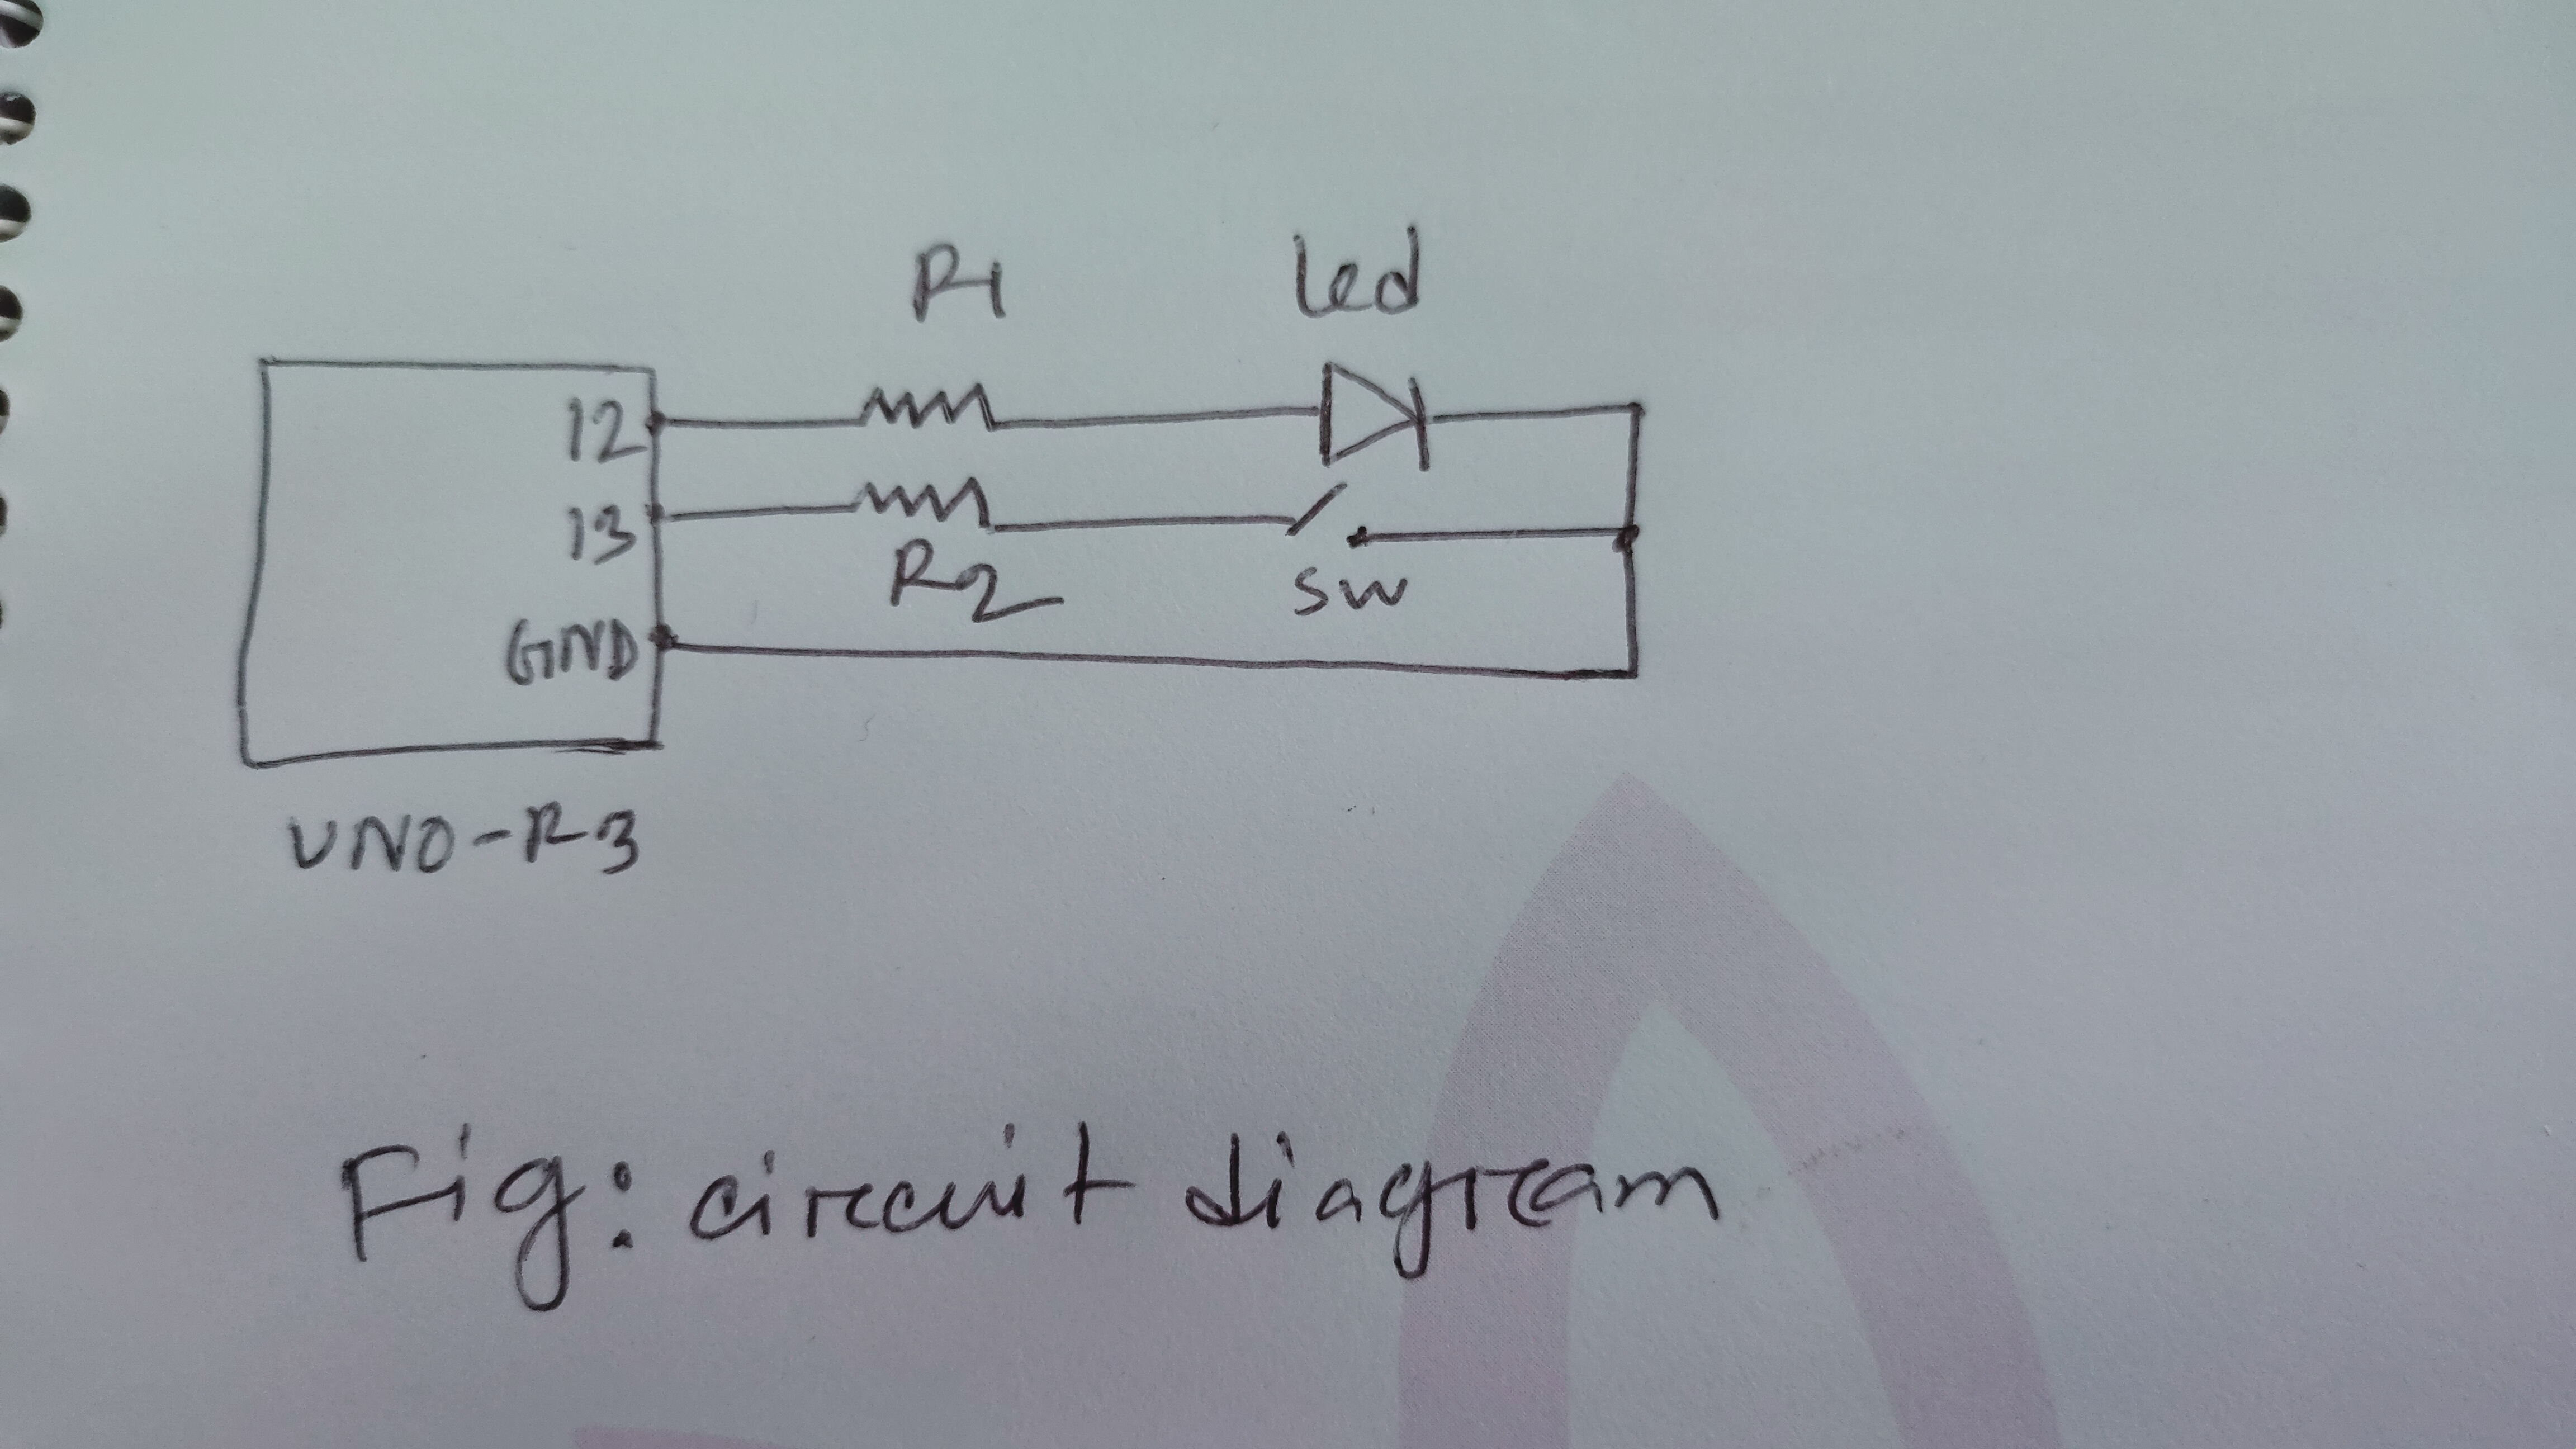 R1 led
12
13
R2 sw
GND
UNO-R3
Fig: circuit diagram